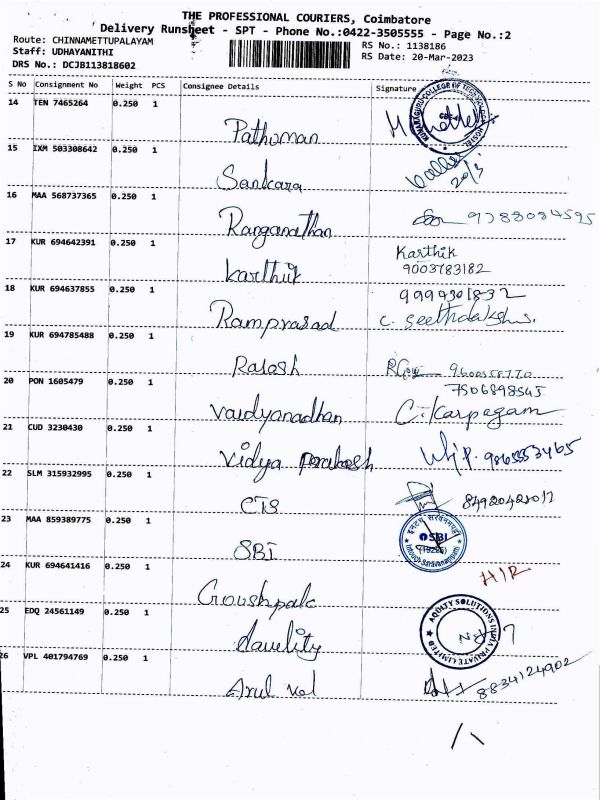 THE PROFESSIONAL COURIERS, Coimbatore
Delivery Runsheet - SPT - Phone No.:0422-3505555 - Page No.:2
Route: CHINNAMETTUPALAYAM
Staff: UDHAYANITHI
DRS No.: DCJB113818602
RS No.: 1138186
RS Date: 20-Mar-2023
S No Consignment No Weight PCS Consignee Details Signature
14 TEN 7465264 0.250 1
Pathuman
15 IXM 503308642 0.250 1
Sankara
20/3
16 MAA 568737365 0.250 1
Ranganathan
9788084595
17 KUR 694642391 0.250 1
Karthik
Karthik
9003783182
18 KUR 694637855 0.250 1
Ramprasad
C. Seethalakshmi.
19 KUR 694785488 0.250 1
Rajash
7506898545
20 PON 1605479 0.250 1
Vaidyanadhan
C. Karpagam
21 CUD 3230430 0.250 1
Vidya prakash
9865553465
22 SLM 315932995 0.250 1
CTS
23 MAA 859389775 0.250 1
SBI
SBI
24 KUR 694641416 0.250 1
H/R
25 EDQ 24561149 0.250 1
AQOLTY SOLUTIONS INDIA PRIVATE LIMITED
26 VPL 401794769 0.250 1
Arul vel
8834124902